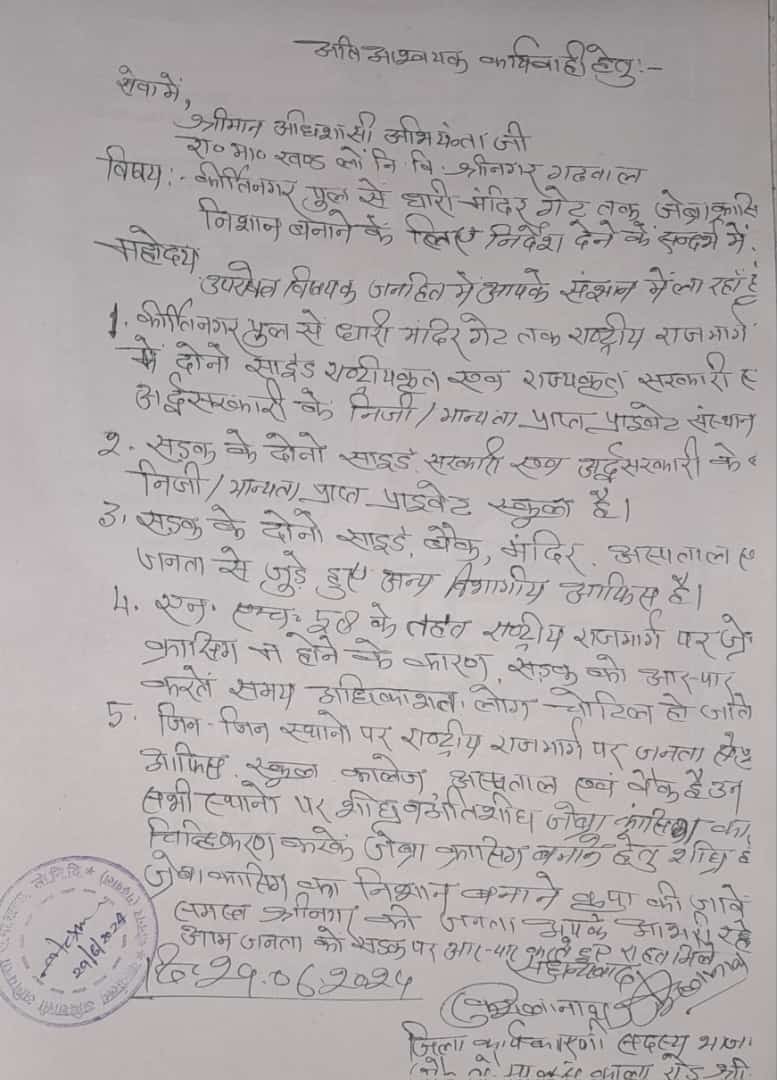 अति आवश्यक कार्यवाही हेतु:-
सेवा में,
श्रीमान अधिशासी अभियंता जी
रा० मा० खण्ड लो नि. वि. श्रीनगर गढवाल
विषय:- कीर्तिनगर पुल से धारी मंदिर गेट तक जेब्राक्रासि
निशान बनाने के लिए निर्देश देने के सन्दर्भ में.
महोदय
उपरोक्त विषयक जनहित में आपके संज्ञान में ला रहाँ हूं
1. कीर्तिनगर पुल से धारी मंदिर गेट तक राष्ट्रीय राजमार्ग
में दोनो साइड राष्ट्रीयकृत एवं राज्यकृत सरकारी ए
अर्द्धसरकारी के निजी/मान्यता प्राप्त प्राइवेट संस्थान
2. सड़क के दोनो साइड सरकारी एवं अर्द्धसरकारी के
निजी/मान्यता प्राप्त प्राइवेट स्कूल है।
3. सड़क के दोनो साइड, बैंक, मंदिर. अस्पताल ए
जनता से जुड़े हुए अन्य विभागीय आफिस है।
4. एन. एच. 58 के तहत राष्ट्रीय राजमार्ग पर जे
क्रासिग न होने के कारण, सड़क को आर-पार
करते समय अधिकाशत: लोग चोटिल हो जाते
5. जिन-जिन स्थानो पर राष्ट्रीय राजमार्ग पर जनता से
आफिस. स्कूल कालेज, अस्पताल एवं बैंक है उन
सभी स्थानो पर शीघ्र व अतिशीघ्र जेब्रा क्रासिंग का
चिन्हिकरण करके जेब्रा क्रासिग बनाने हेतु शीघ्र
जेब्राक्रासिग का निशान बनाने कृपा की जावें
समस्त श्रीनगर की जनता आपके आभारी रहे
आम जनता को सड़क पर आर-पार करते हुए राहत मिले
दि- 29.06.2024
सधन्यवाद
29/6/2024
जिला कार्यकारणी सदस्य भाजा
काला रोड श्री